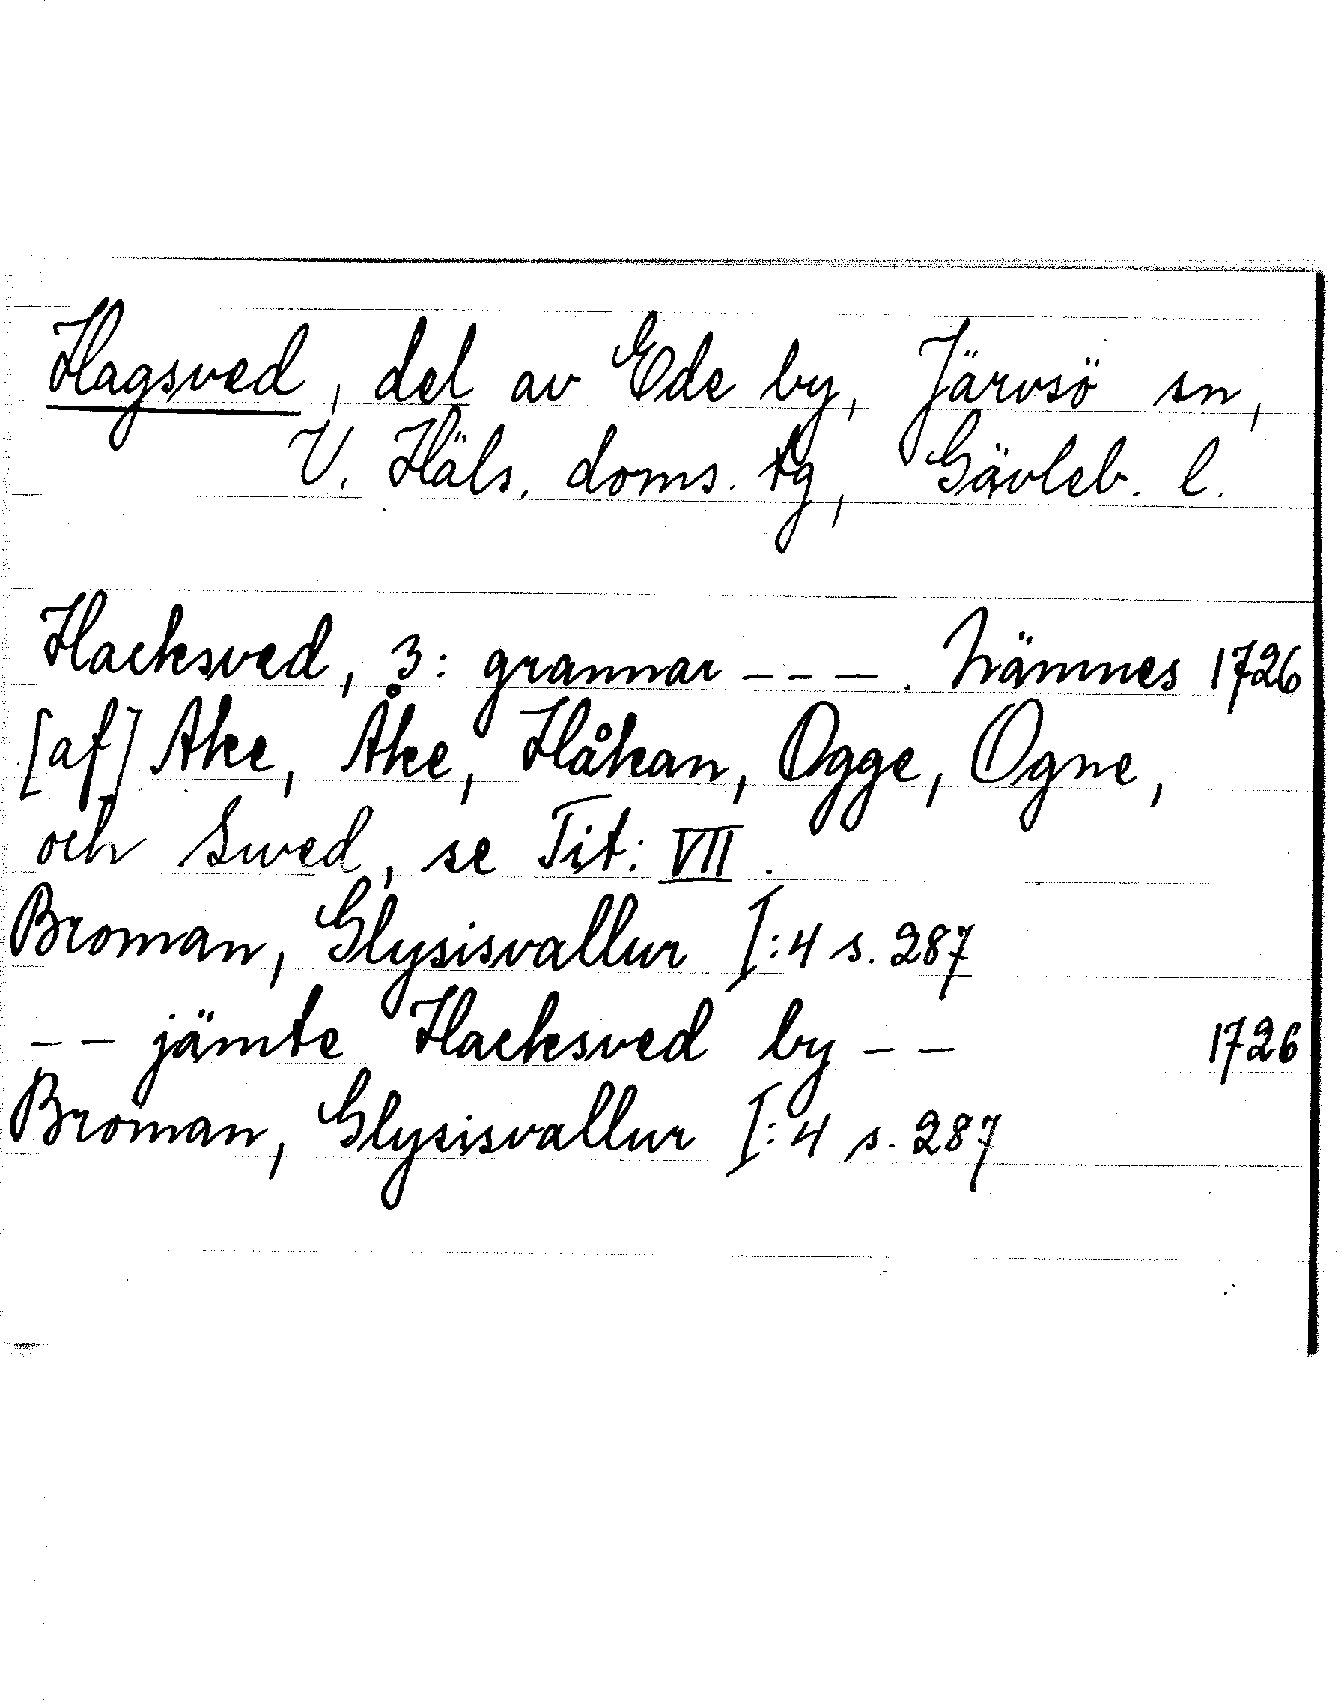 Hagsved, del av Ede by, Järvsö sn,
V. Häls. doms. tg, Gävleb. l.
Hacksved, 3: grannar - - -. Nämnes 1726
[af] Ake, Åke, Håkan, Ogge, Ogne,
och Swed, se Tit: VII.
Broman, Glysisvallur I:4 s. 287
- - jämte Hacksved by - - 1726
Broman, Glysisvallur I:4 s. 287